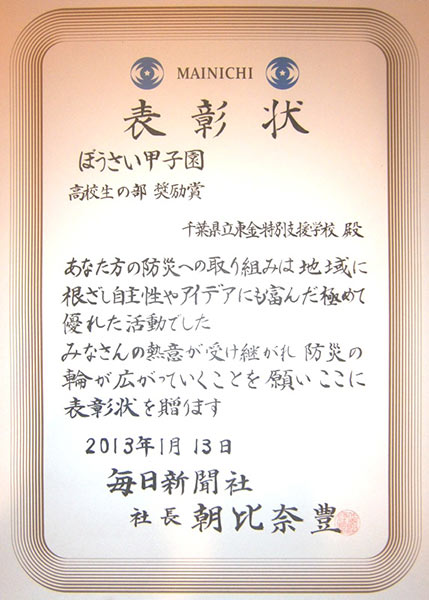 MAINICHI
表彰状
ぼうさい甲子園
高校生の部 奨励賞
千葉県立東金特別支援学校 殿
あなた方の防災への取り組みは 地域に
根ざし自主性やアイデアにも富んだ極めて
優れた活動でした
みなさんの熱意が受け継がれ 防災の
輪が広がっていくことを 願い ここに
表彰状を贈ります
2013年1月13日
毎日新聞社
社長 朝比奈豊